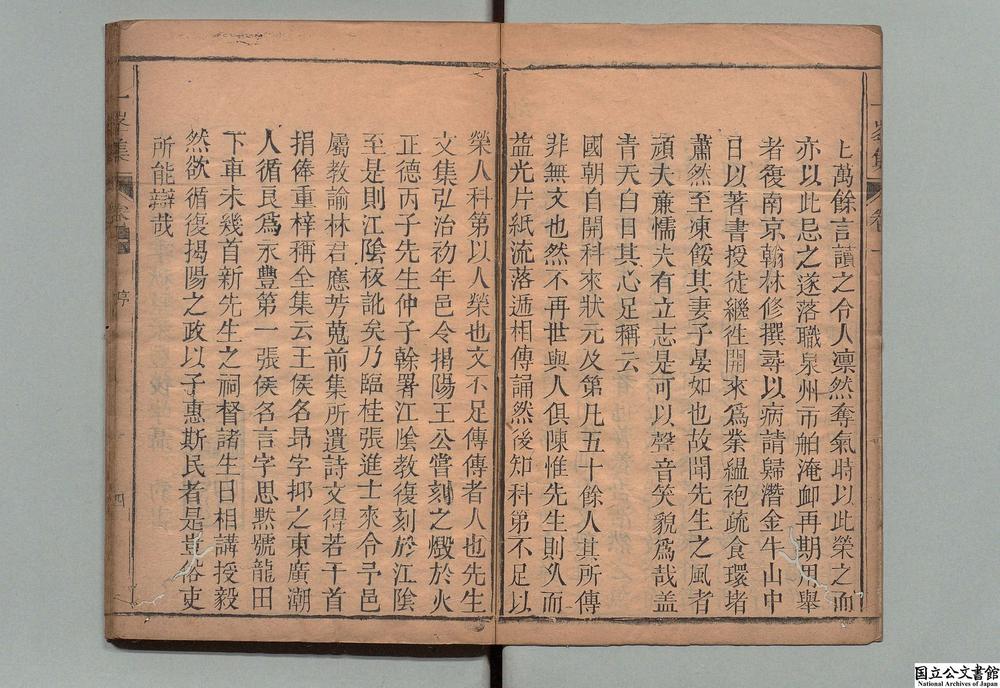 上萬餘言讀之令人凛然奪氣時以此榮之而
亦以此忌之遂落職泉州市舶淹卹再期用舉
者復南京翰林修撰尋以病請歸潛金牛山中
日以著書授徒繼徃開來爲業緼袍疏食環堵
蕭然至凍餒其妻子晏如也故聞先生之風者
頑夫廉懦夫有立志是可以聲音笑貌爲哉盖
青天白日其心足稱云
國朝自開科來狀元及第凡五十餘人其所傳
非無文也然不再世與人俱陳惟先生則久而
益光片紙流落遞相傳誦然後知科第不足以
榮人科第以人榮也文不足傳傳者人也先生
文集弘治初年邑令揭陽王公嘗刻之燬於火
正德丙子先生仲子翰署江陰教復刻於江陰
至是則江陰板訛矣乃臨桂張進士來令予邑
屬教諭林君應芳蒐前集所遺詩文得若干首
捐俸重梓稱全集云王侯名昂字抑之東廣潮
人循良爲永豐第一張侯名言字思黙號龍田
下車未幾首新先生之祠督諸生日相講授毅
然欲循復揭陽之政以子惠斯民者是豈俗吏
所能辯哉
一峯集
卷一
序
四
国立公文書館
National Archives of Japan